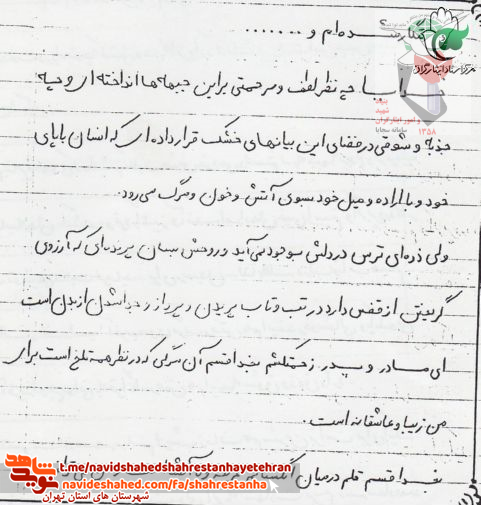 شده ام و .......
خدایا چه نظر لطف و مرحمتی بر این جبهه ها انداخته ای و چه
جذبه و شوقی در فضای این بیابانهای خشک قرار داده ای که انسان با پای
خود و با اراده و میل خود بسوی آتش و خون و مرگ می رود.
ولی ذره ای ترس در دلش بوجود نمی آید و روحش بسان پرنده ای که آرزوی
گریختن از قفس دارد در تب و تاب پریدن و پرواز و جدا شدن از بدن است
ای مادر و پدر زحمتکشم بخدا قسم آن مرگی که در نظر همه تلخ است برای
من زیبا و عاشقانه است.
بخدا قسم قلم در میان
مرکز اسناد ایثارگران
۱۳۵۸
سامانه سجایا
نوید شاهد
t.me/navidshahedshahrestanhayetehran
navideshahed.com/fa/shahrestanha
شهرستان های استان تهران